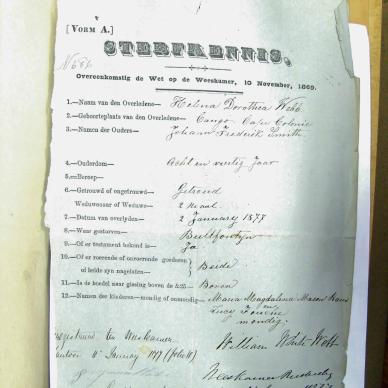 [VORM A.]
STERFKENNIS.
Overeenkomstig de Wet op de Weeskamer, 10 November, 1869.
1.—Naam van den Overledene— Helena Dorothea Webb
2.—Geboorteplaats van den Overledene— Cango Cape Colonie
3.—Namen der Ouders— Johann Frederik Smith
4.—Ouderdom— Acht en veertig Jaar
5.—Beroep—
6.—Getrouwd of ongetrouwd— Getroud
Weduwenaar of Weduwe— 2 maal
7.—Datum van overlyden— 2 January 1877
8.—Waar gestorven— Bultfontyn
9.—Of er testament bekend is— Ja
10.—Of er roerende of onroerende goederen
of beide zyn nagelaten— Beide
11.—Is de boedel naar gissing boven de Boven
12.—Namen der Kinderen—mondig of onmondig— Maria Magdalena
en
Lucy
mondig
Weeskamer
January 1877
William White Webb
Weeskamer